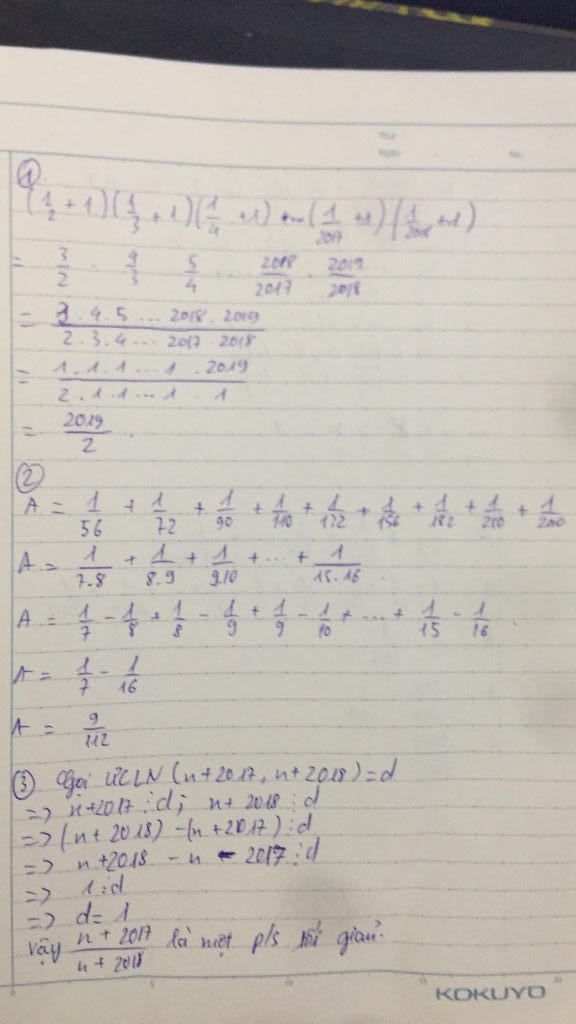 ①
(1/2 + 1)(1/3 + 1)(1/4 + 1) + ... (1/2017 + 1)(1/2018 + 1)
= 3/2 . 4/3 . 5/4 ... 2018/2017 . 2019/2018
= 3 . 4 . 5 ... 2018 . 2019 / 2 . 3 . 4 ... 2017 . 2018
= 1 . 1 . 1 ... 1 . 2019 / 2 . 1 . 1 ... 1 . 1
= 2019/2 .
②
A = 1/56 + 1/72 + 1/90 + 1/110 + 1/132 + 1/156 + 1/182 + 1/210 + 1/240
A = 1/7.8 + 1/8.9 + 1/9.10 + ... + 1/15.16
A = 1/7 - 1/8 + 1/8 - 1/9 + 1/9 - 1/10 + ... + 1/15 - 1/16
A = 1/7 - 1/16
A = 9/112
③ Gọi ƯCLN (n+2017, n+2018) = d
=> n+2017 ⋮ d; n+2018 ⋮ d
=> (n+2018) - (n+2017) ⋮ d
=> n+2018 - n - 2017 ⋮ d
=> 1 ⋮ d
=> d = 1
Vậy n+2017/n+2018 là một p/s tối giản.
KOKUYO